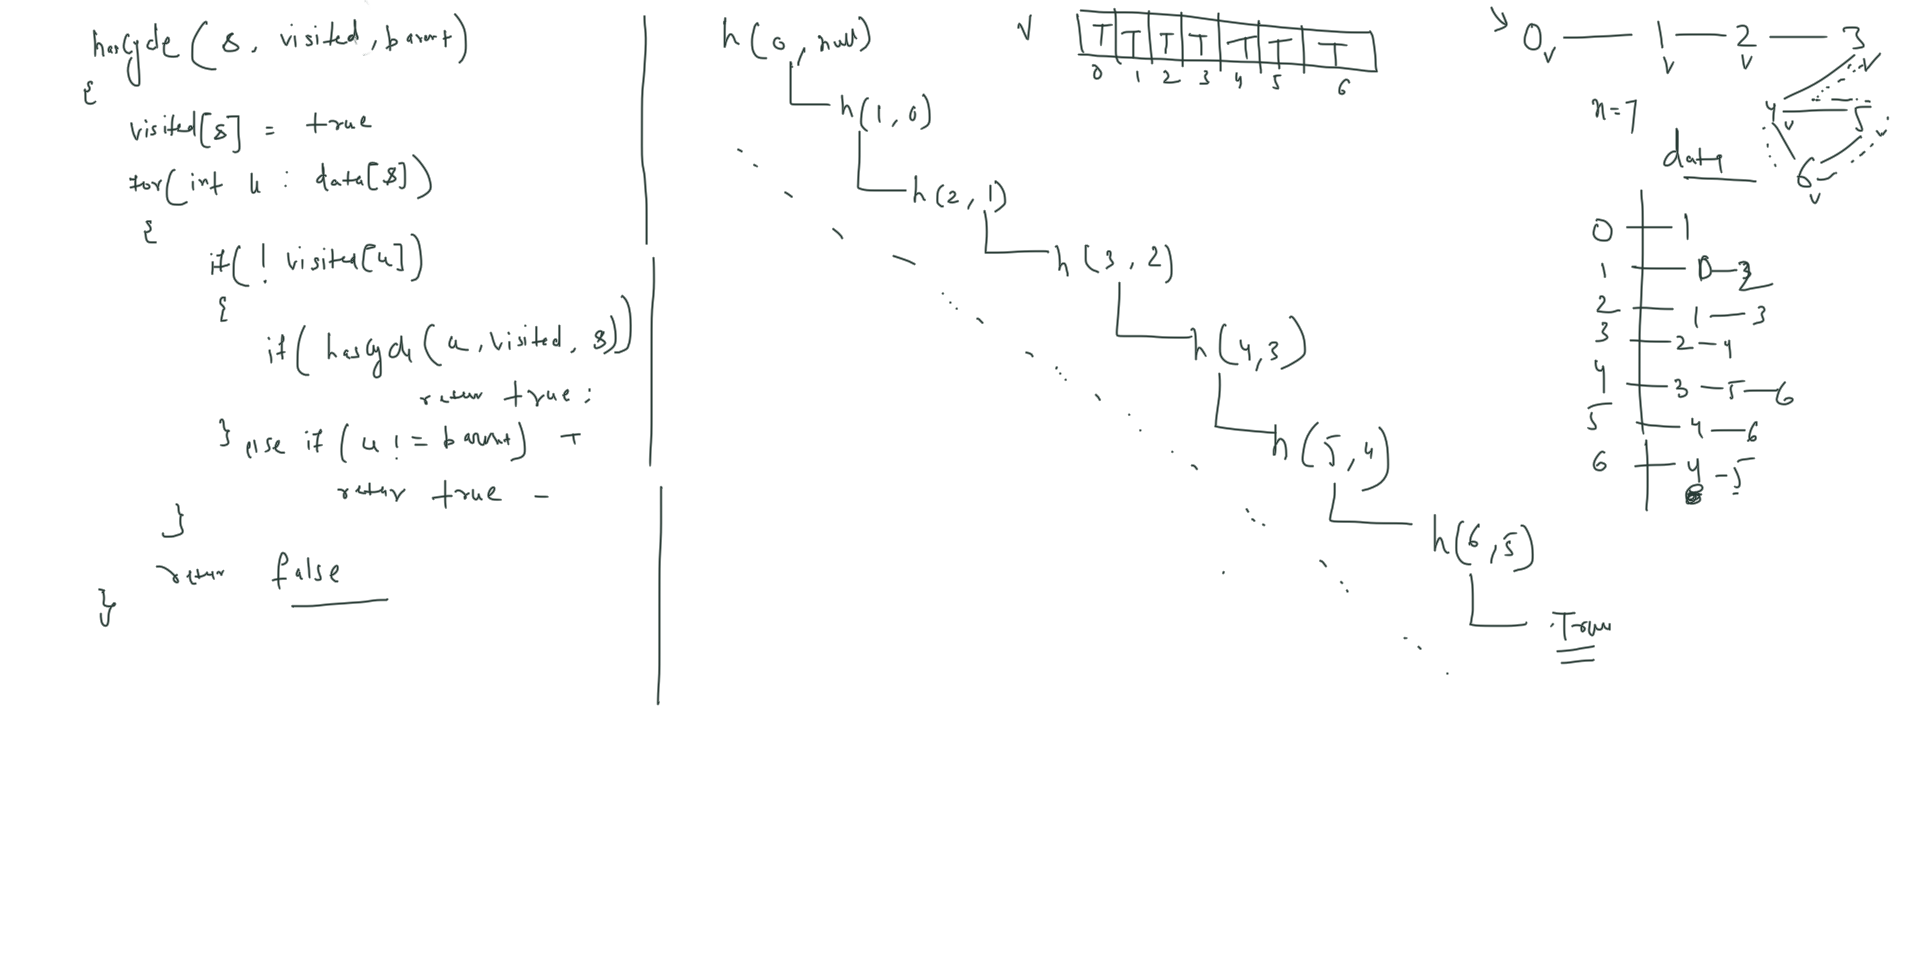 hasCycle ( s, visited, parent)
{
visited[s] = true
for( int u : data[s])
{
if( ! visited[u])
{
if( hasCycle ( u, visited, s))
return true ;
} else if ( u != parent) T
return true -
}
return false
}
h(0, null)
h(1, 0)
h(2, 1)
h(3, 2)
h(4,3)
h(5,4)
h(6,5)
True
V T T T T T T T
0 1 2 3 4 5 6
0 1 2 3
4 5
6
n=7
data
0 1
1 0-2
2 1-3
3 2-4
4 3-5-6
5 4-6
6 4-5